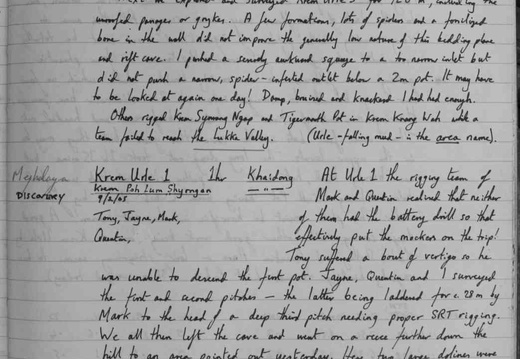 we explored and surveyed Krem Urle 3 for 120 m, including the
unroofed passages or grykes. A few formations, lots of spiders and a fossilised
bone in the wall did not improve the generally low nature of this bedding plane
and rift cave. I pushed a severely awkward squeeze to a too narrow inlet but
did not push a narrow, spider-infested outlet below a 2m pot. It may have
to be looked at again one day! Damp, bruised and knackered I had had enough.
Others rigged Krem Synrang Ngap and Tigermouth Pot in Krem Krang Wah while a
team failed to reach the Lukha Valley. (Urle - falling mud - is the area name).
Meghalaya
DISCOVERY
Krem Urle 1 1hr Khaidong
Krem Poh Lum Shyrngan
9/2/05
Tony, Jayne, Mark,
Quentin,
At Urle 1 the rigging team of
Mark and Quentin realised that neither
of them had the battery drill so that
effectively put the mockers on the trip!
Tony suffered a bout of vertigo so he
was unable to descend the first pot. Jayne, Quentin and I surveyed
the first and second pitches — the latter being laddered for c.28m by
Mark to the head of a deep third pitch needing proper SRT rigging.
We all then left the cave and went on a recce further down the
hill to an area pointed out yesterday. Here two large dolines were